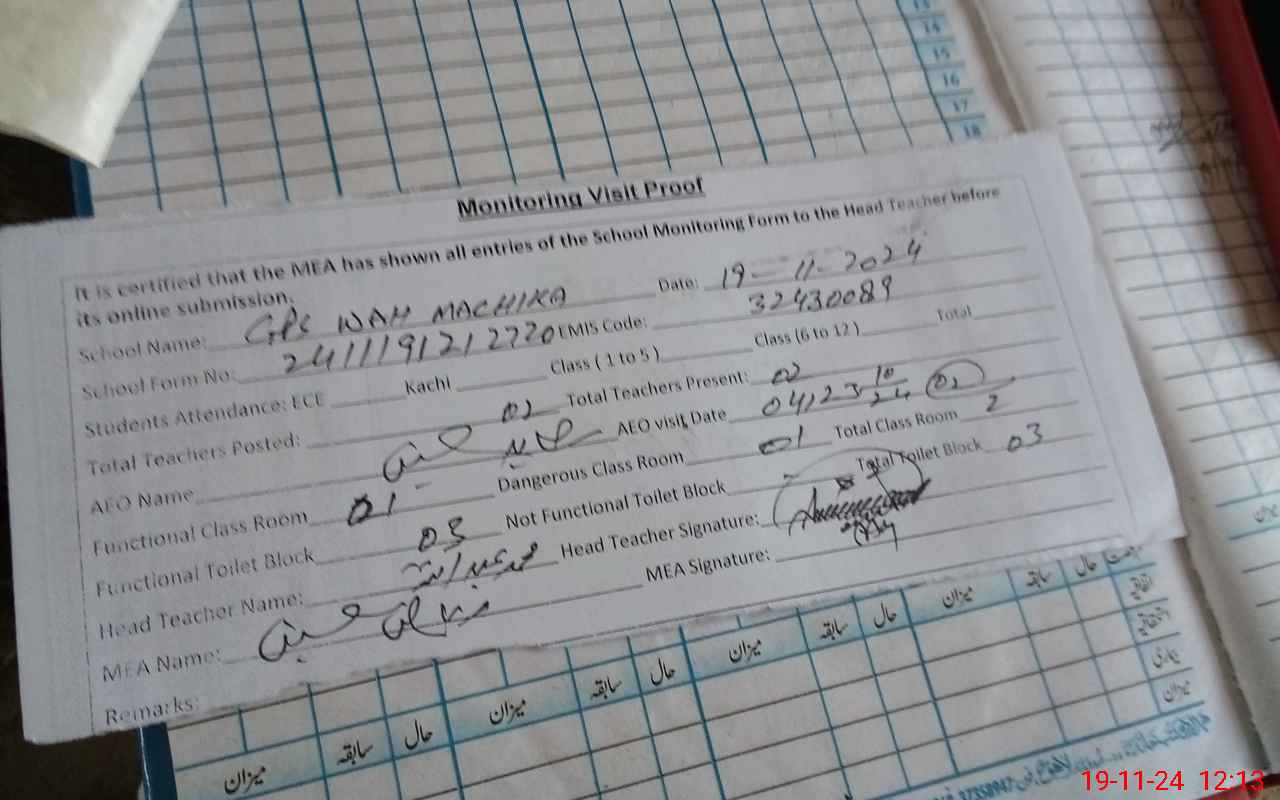 13
14
15
16
17
18
Monitoring Visit Proof
It is certified that the MEA has shown all entries of the School Monitoring Form to the Head Teacher before
its online submission.
School Name: GPS WAH MACHIKA Date: 19-11-2024
School Form No: 2411191212720 EMIS Code: 32430089
Students Attendance: ECE Kachi Class ( 1 to 5 ) Class (6 to 12 ) Total
Total Teachers Posted: 02 Total Teachers Present: 02
AEO Name AEO visit Date 04,23 10/24 02
Functional Class Room 01 Dangerous Class Room 01 Total Class Room 2
Functional Toilet Block 03 Not Functional Toilet Block Total Toilet Block 03
Head Teacher Name: محمد عبداللہ Head Teacher Signature:
MEA Name: MEA Signature:
Remarks:
میزان سابقہ حال میزان سابقہ حال میزان سابقہ حال میزان سابقہ حال
میزان
19-11-24 12:13